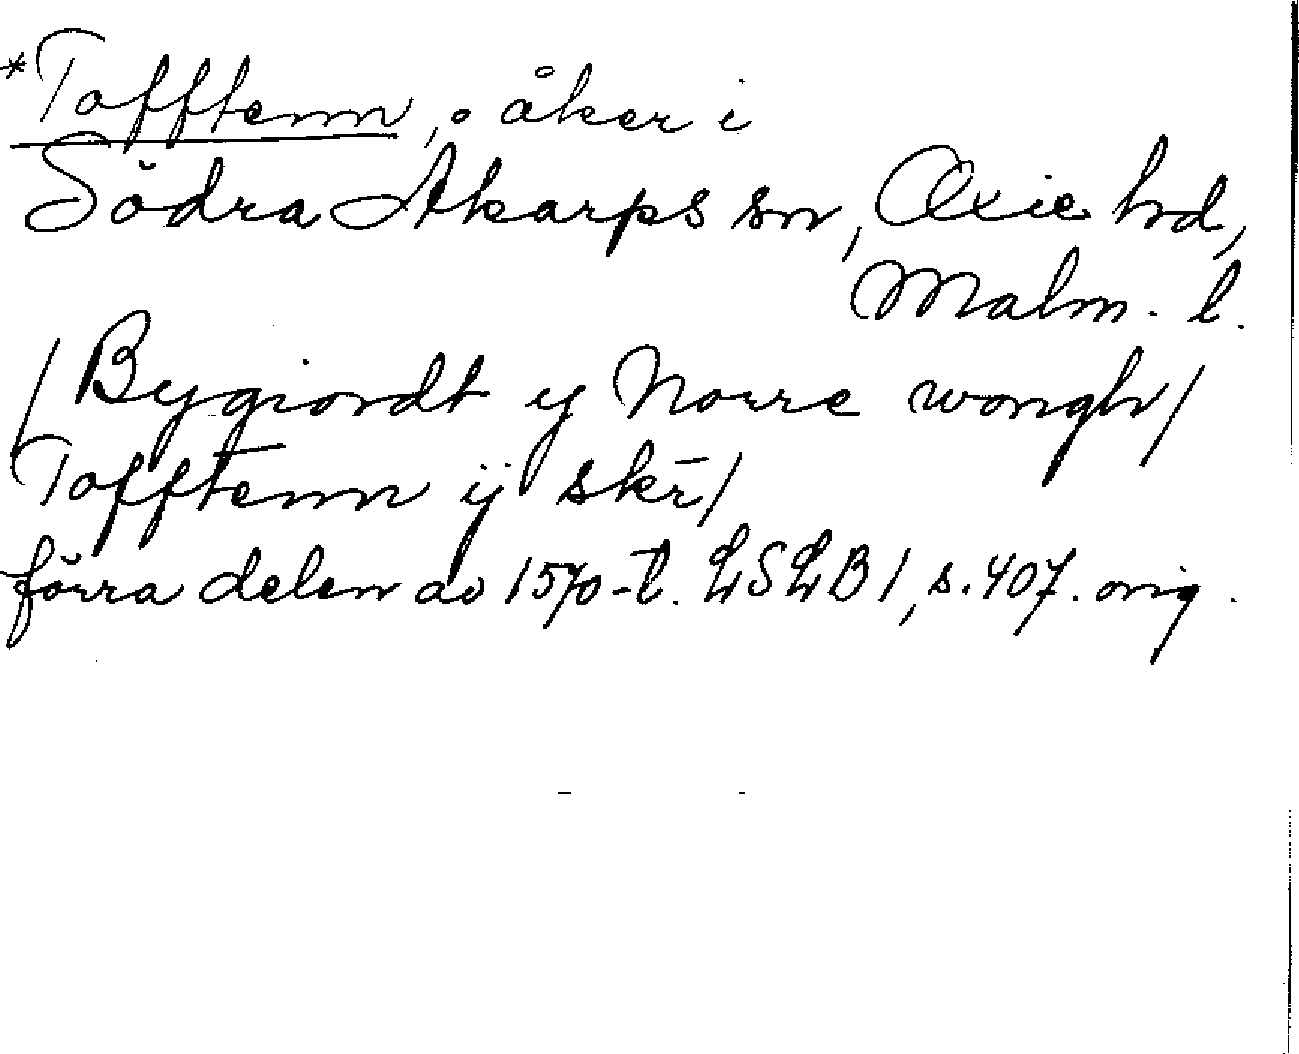 *Tofftenn, åker i
Södra Åkarps sn, Oxie hd,
Malm. l.
/Bygiordt y Norre wongh/
Tofftenn ij skr̄/
förra delen av 1570-t. LSLB 1, s. 407. orig.